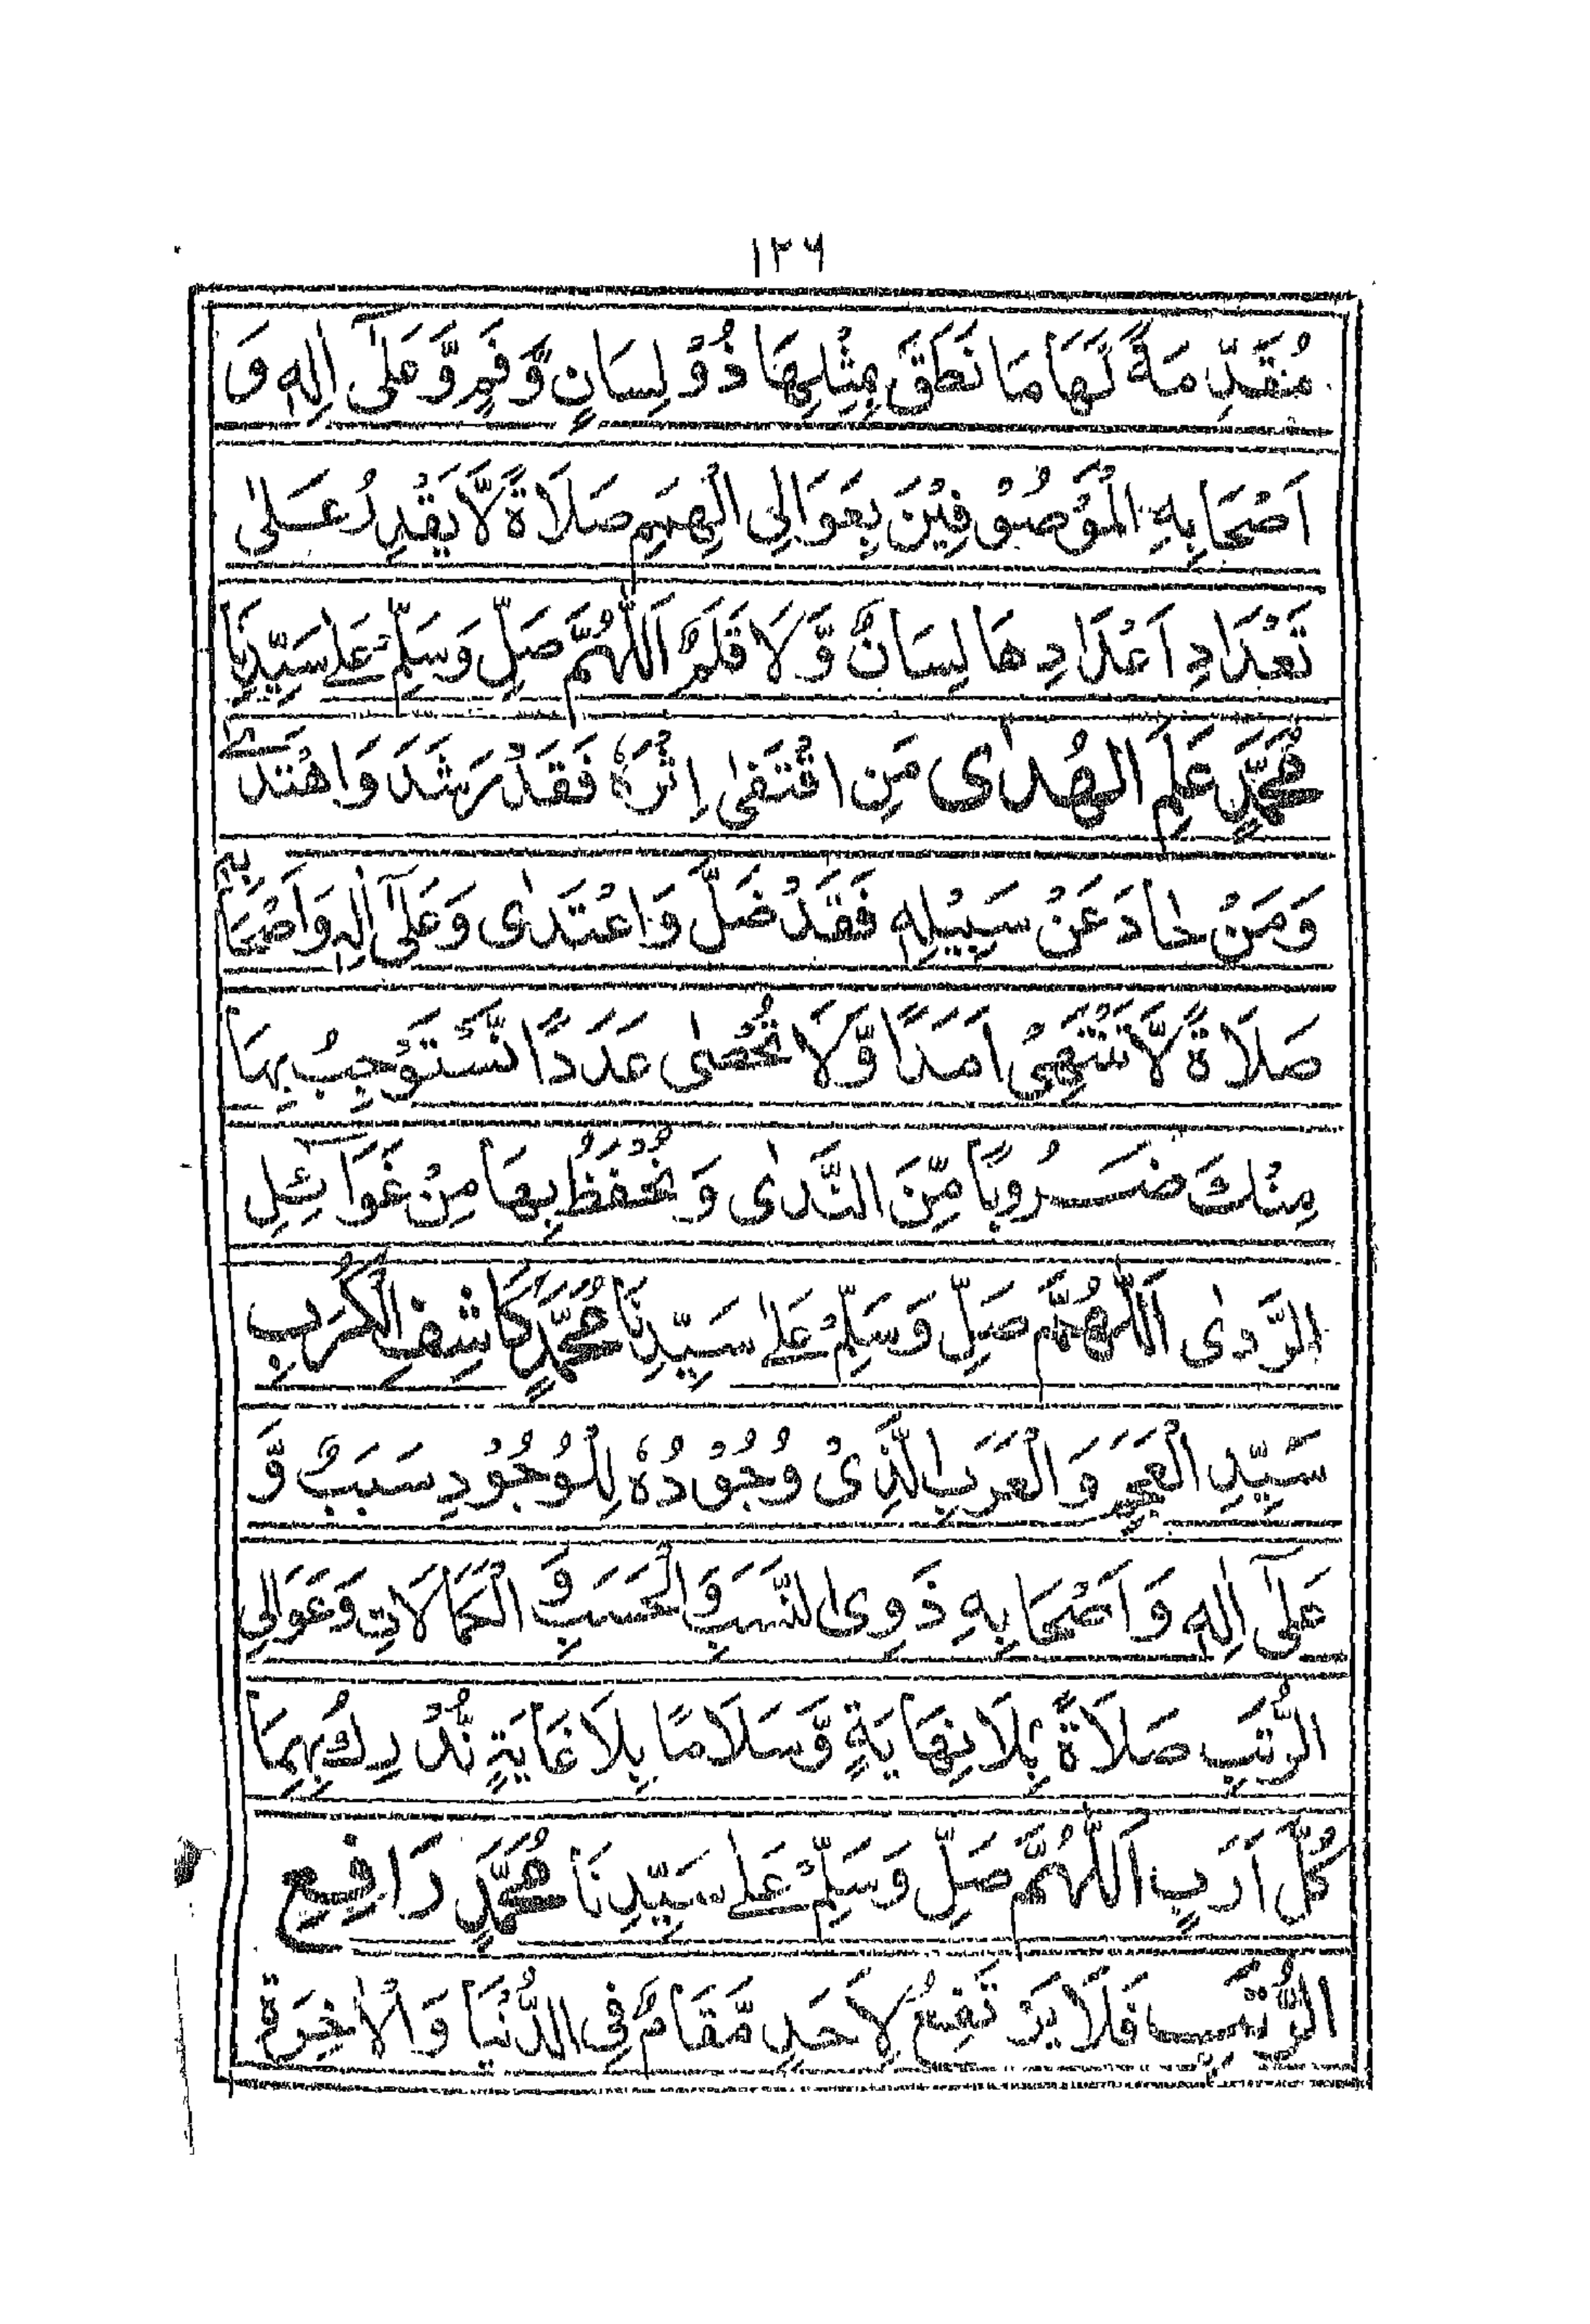 ١٢٦
مُتَقَدِّمَةً لَّهَا مَا نَطَقَ بِمِثْلِهَا ذُوْ لِسَانٍ وَّفَمٍ وَّعَلٰٓى اٰلِهٖ وَ
اَصْحَابِهِ الْمَوْصُوْفِيْنَ بِعَوَالِى الْهِمَمِ صَلَاةً لَّا يَقْدِرُ عَلٰى
تَعْدَادِ اَعْدَادِهَا لِسَانٌ وَّلَا قَلَمٌ اَللّٰهُمَّ صَلِّ وَسَلِّمْ عَلٰى سَيِّدِنَا
مُحَمَّدٍ عَلَمِ الْهُدٰى مَنِ اقْتَفٰى اِثْرَهٗ فَقَدْ رَشَدَ وَاهْتَدٰى
وَمَنْ حَادَ عَنْ سَبِيْلِهٖ فَقَدْ ضَلَّ وَاعْتَدٰى وَعَلٰٓى اٰلِهٖ وَاَصْحَابِهٖ
صَلَاةً لَّا تَنْتَهِىْ اَمَدًا وَّلَا تُحْصٰى عَدَدًا نَّسْتَوْجِبُ بِهَا
مِنْكَ ضُرُوبًا مِّنَ النَّدٰى وَنُحْفَظُ بِهَا مِنْ غَوَآئِلِ
الرَّدٰى اَللّٰهُمَّ صَلِّ وَسَلِّمْ عَلٰى سَيِّدِنَا مُحَمَّدٍ كَاشِفِ الْكُرَبِ
سَيِّدِ الْعَجَمِ وَالْعَرَبِ الَّذِىْ وُجُوْدُهٗ لِلْوُجُوْدِ سَبَبٌ وَّ
عَلٰٓى اٰلِهٖ وَاَصْحَابِهٖ ذَوِى النَّسَبِ وَالْحَسَبِ وَ الْكَمَالَاتِ وَعَوَالِى
الرُّتَبِ صَلَاةً بِلَا نِهَايَةٍ وَّسَلَامًا بِلَا غَايَةٍ نُّدْرِكُ بِهِمَا
كُلَّ اَرَبٍ اَللّٰهُمَّ صَلِّ وَسَلِّمْ عَلٰى سَيِّدِنَا مُحَمَّدٍ رَافِيعِ
الرُّتَبِ فَلَا يَرْتَفِعُ لِاَحَدٍ مَّقَامٌ فِى الدُّنْيَا وَالْاٰخِرَةِ